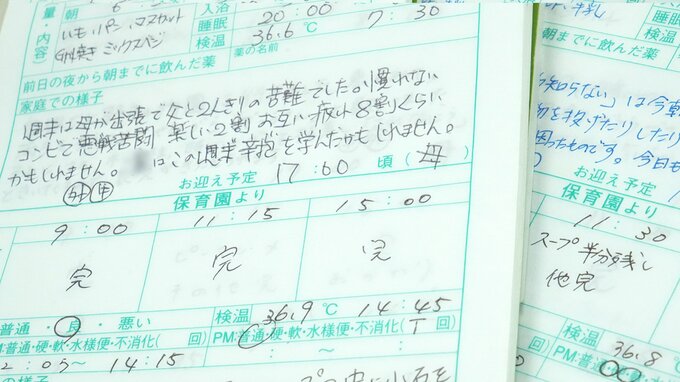 量 朝 6 入浴
睡眠 20:00 7:30
内容 いもパン マスカット
GM焼き ミックスベジ
検温 36.6 ℃
薬の名前
前日の夜から朝までに飲んだ薬
家庭での様子
週末は母が出張で父と2人きりの苦難でした。慣れない
コンビで悪戦苦闘 楽しい2割 お互い疲れ8割くらい
かもしれません。 はこの週末辛抱を学んだかもしれません。
お迎え予定 17:60 頃(母)
保育園より
9:00 11:15 15:00
完 完 完
普通・良・悪い
検温 36.9 ℃ 14:45
PM:普通・硬・軟・水様便・不消化( T 回)
14:15
朝までに飲んだ薬
知らない」は今朝
物を投げたりしたり
困ったものです。今日も
お迎え予定
保育園より
11:30
スープ半分残し
他完
検温 36.8
PM:普通・硬・軟